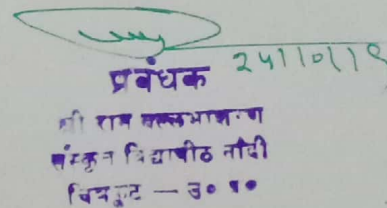 24/10/19
प्रबंधक
श्री राम
संस्कृत विद्यापीठ नाँदी
चित्रकूट — उ० प्र०